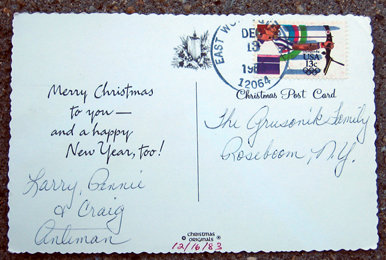 EAST WO
DEC
13
198
12064
USA
13c
Christmas Post Card
Merry Christmas
to you—
and a happy
New Year, too!
The Grusonik Family
Roseboom, N.Y.
Larry, Connie
& Craig
Antiman
CHRISTMAS
ORIGINALS
12/16/83